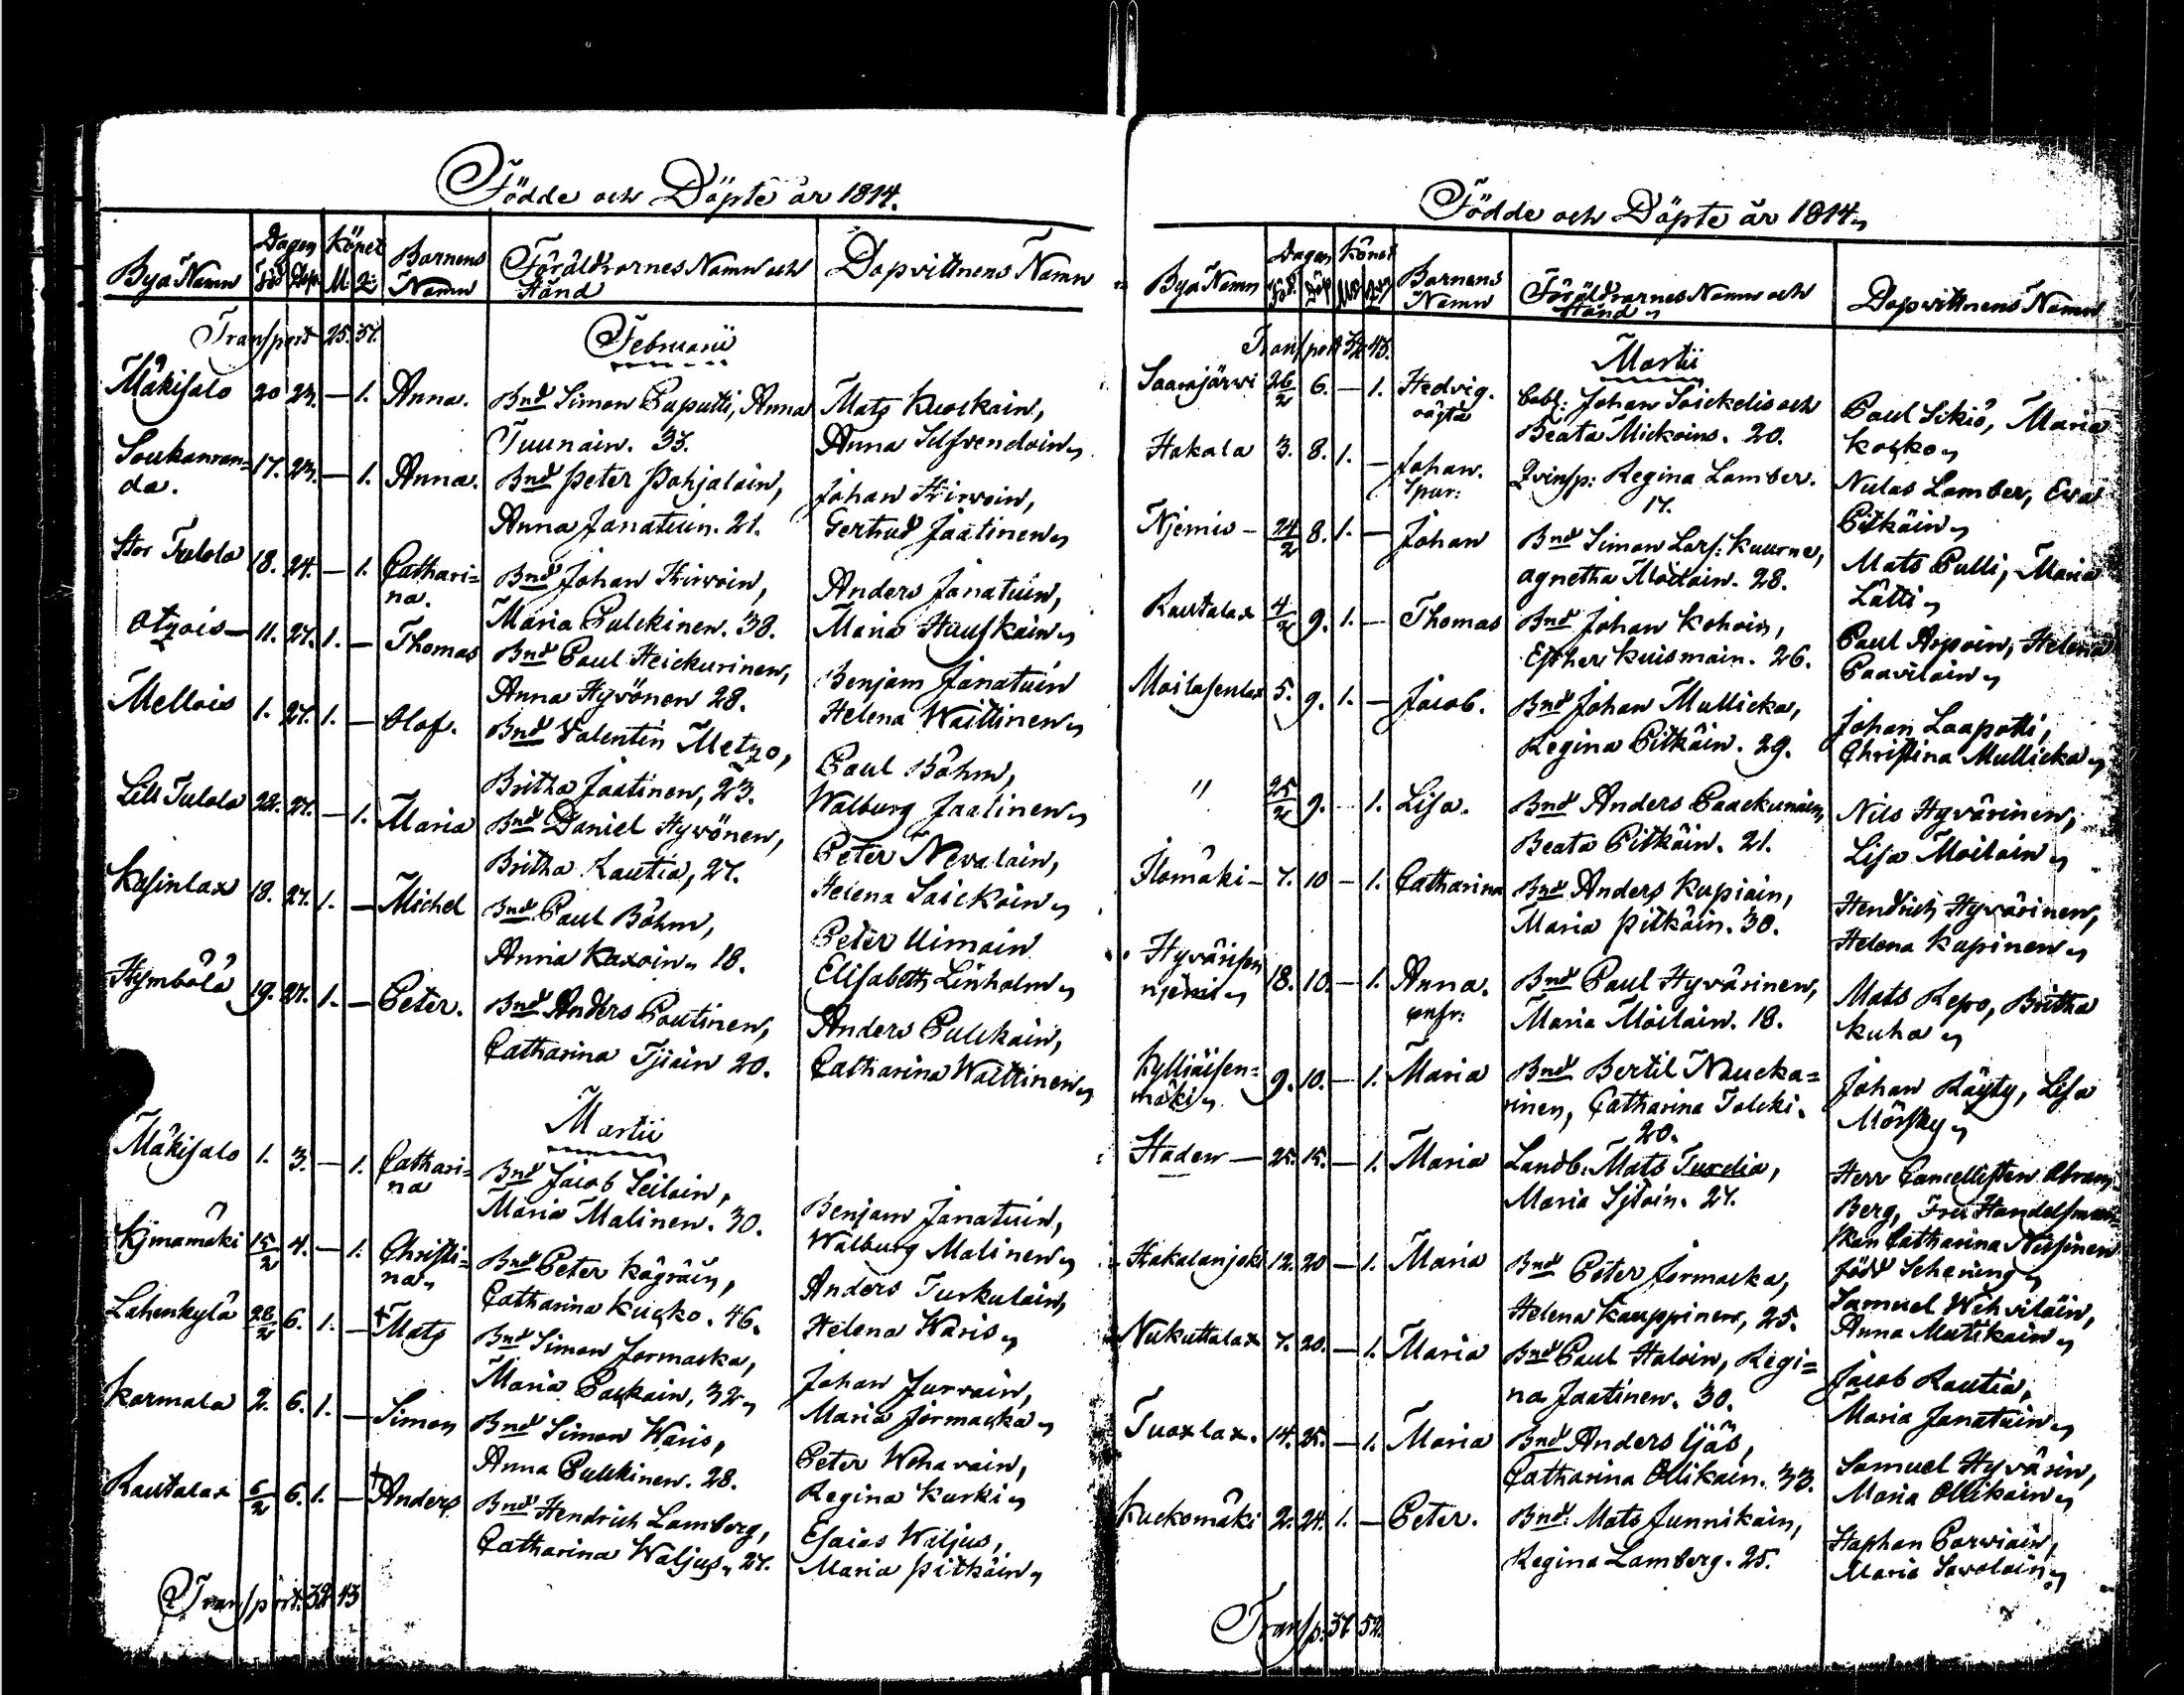 Födde och Döpte år 1814.
Bya Namn Dagen Könet Barnens Föräldrarnes Namn och Dopvittnens Namn
Föd Döp. M: Q: Namn Stånd
Transport 25. 37. Februarii
Mäkisalo 20 23. — 1. Anna. Bnd Simon Paputti, Anna Mats Kuockain,
Tuunain. 33. Anna Silfvendoin
Soukanran= 17. 23. — 1. Anna. Bnd Peter Pohjalain, Johan Hirvoin,
da. Anna Janatuin. 21. Gertrud Jaatinen
Stor Tulola 18. 24. — 1. Cathari= Bnd Johan Hirvoin, Anders Janatuin,
na. Maria Pulckinen. 38. Maria Hauskain
Otzois — 11. 27. 1. — Thomas Bnd Paul Heickurinen, Benjam Janatuin
Anna Hyvönen 28. Helena Waittinen
Mellois 1. 27. 1. — Olof. Bnd Valentin Metzo, Paul Böhm,
Britha Jaatinen, 23. Walburg Jaatinen
Lill Tulola 22. 27. — 1. Maria Bnd Daniel Hyvönen, Peter Nevalain,
Britha Rautia, 27. Helena Saickoin
Kasinlax 18. 27. 1. — Michel Bnd Paul Böhm, Peter Uimoin
Anna Kaxoin 18. Elisabeth Linholm
Hymbölä 19. 27. 1. — Peter. Bnd Anders Poutinen, Anders Pulckain,
Catharina Tjiäin 20. Catharina Waittinen
Martii
Mäkisalo 1. 3. — 1. Cathari= Bnd Jacob Seiloin, Benjam Janatuin,
na Maria Malinen. 30. Walburg Malinen
Kjmamäki 15/2 4. — 1. Christi= Bnd Peter Kägräin, Anders Turkulain,
na Catharina Kucko. 46. Helena Waris
Lahenkylä 28/2 6. 1. — † Mats Bnd Simon Jormacka, Johan Jurvain,
Maria Packain, 32 Maria Jormacka
Karmala 2. 6. 1. — Simon Bnd Simon Waris, Peter Wohavain,
Anna Pulckinen. 28. Regina Kurki
Rautalax 6/2 6. 1. — † Anders Bnd Hendrich Lamberg, Esaias Waljus,
Catharina Waljus, 27. Maria Pitkäin
Transport. 32 43
Födde och Döpte år 1814
Bya Namn Dagen Könet Barnens Föräldrarnes Namn och Dopvittnens Namn
Föd. Döp Namn Stånd
Transport 32 43. Martii
Saarijärvi 26/2 6. — 1. Hedvig. Johan Saickelis och Paul Sikiö, Maria
oägta Beata Mickoins. 20. Kosko
Hakala 3. 8. 1. — Johan. Qvinsp: Regina Lamber. Nulas Lamber, Eva
Spur: 17. Pitkäin
Njemis — 24/2 8. 1. — Johan Bnd Simon Lars: Kuurne, Mats Pulli, Maria
Agnetha Moilain. 28. Lätti
Rautalax 4/2 9. 1. — Thomas Bnd Johan Kohoin, Paul Arpoin, Helena
Esther Kuismain. 26. Paavilain
Moilasenlax 5. 9. 1. — Jacob. Bnd Johan Mullicka, Johan Laapotti,
Regina Pitkäin. 29. Christina Mullicka
" 25/2 9. — 1. Lisa. Bnd Anders Paackunain, Nils Hyvärinen,
Beata Pitkäin. 21. Lisa Moilain
Ilomäki — 7. 10 — 1. Catharina Bnd Anders Kupiain, Hendrich Hyvärinen,
Maria Pitkäin. 30. Helena Kupinen
Hyvärisen 18. 10. — 1. Anna. Bnd Paul Hyvärinen, Mats Repo, Britha
njemi Maria Moilain. 18. Kuha
Kylliäisen= 9. 10. — 1. Maria Bnd Bertil Naucka= Johan Räyty, Lisa
mäki rinen, Catharina Tolcki. Mörsky
20.
Staden — 25. 15. — 1. Maria Landb. Mats Turdia, Herr Cancellisten Abram
Maria Sjtoin. 27. Berg, Fru Handelsman=
skan Catharina Nissinen
född Schening
Hakalanjoki 12. 20 — 1. Maria Bnd Peter Jormacka, Samuel Wehviläin,
Helena Kauppinen, 25. Anna Mutikain
Nukuttalax 7. 20. — 1. Maria Bnd Paul Haloin, Regi= Jacob Rautia,
na Jaatinen. 30. Maria Janatuin
Tuoxlax. 14. 25. — 1. Maria Bnd Anders Ijäs, Samuel Hyvärin,
Catharina Ollikain. 33. Maria Ollikain
Kuckomäki 2. 24. 1. — Peter. Bnd. Mats Junnikain, Staphan Parviain,
Regina Lamberg. 25. Maria Savolain
Transp. 37 52.